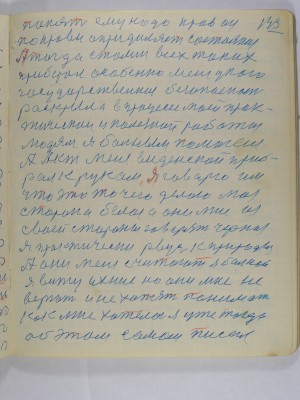 понят ему надо кров ои
по крови определяет состояния
А тогда столи всех таких
прибрал особенно меня дного
государственная безопасност
раскрыла в процесе мой прак-
тической и полезной работы
людям я больным помогаю
А Акт меня виденской при
рал к рукам, Я говарю им
что это то чего делою моя
сторона белая а они мне из
своей стороны говорят черная
я практически рвус к природы
А они меня считают я болной
я вижу ихние но они мне не
верят и не хотят понимат
как мне хотелос я уже тогда
об этом самом писал